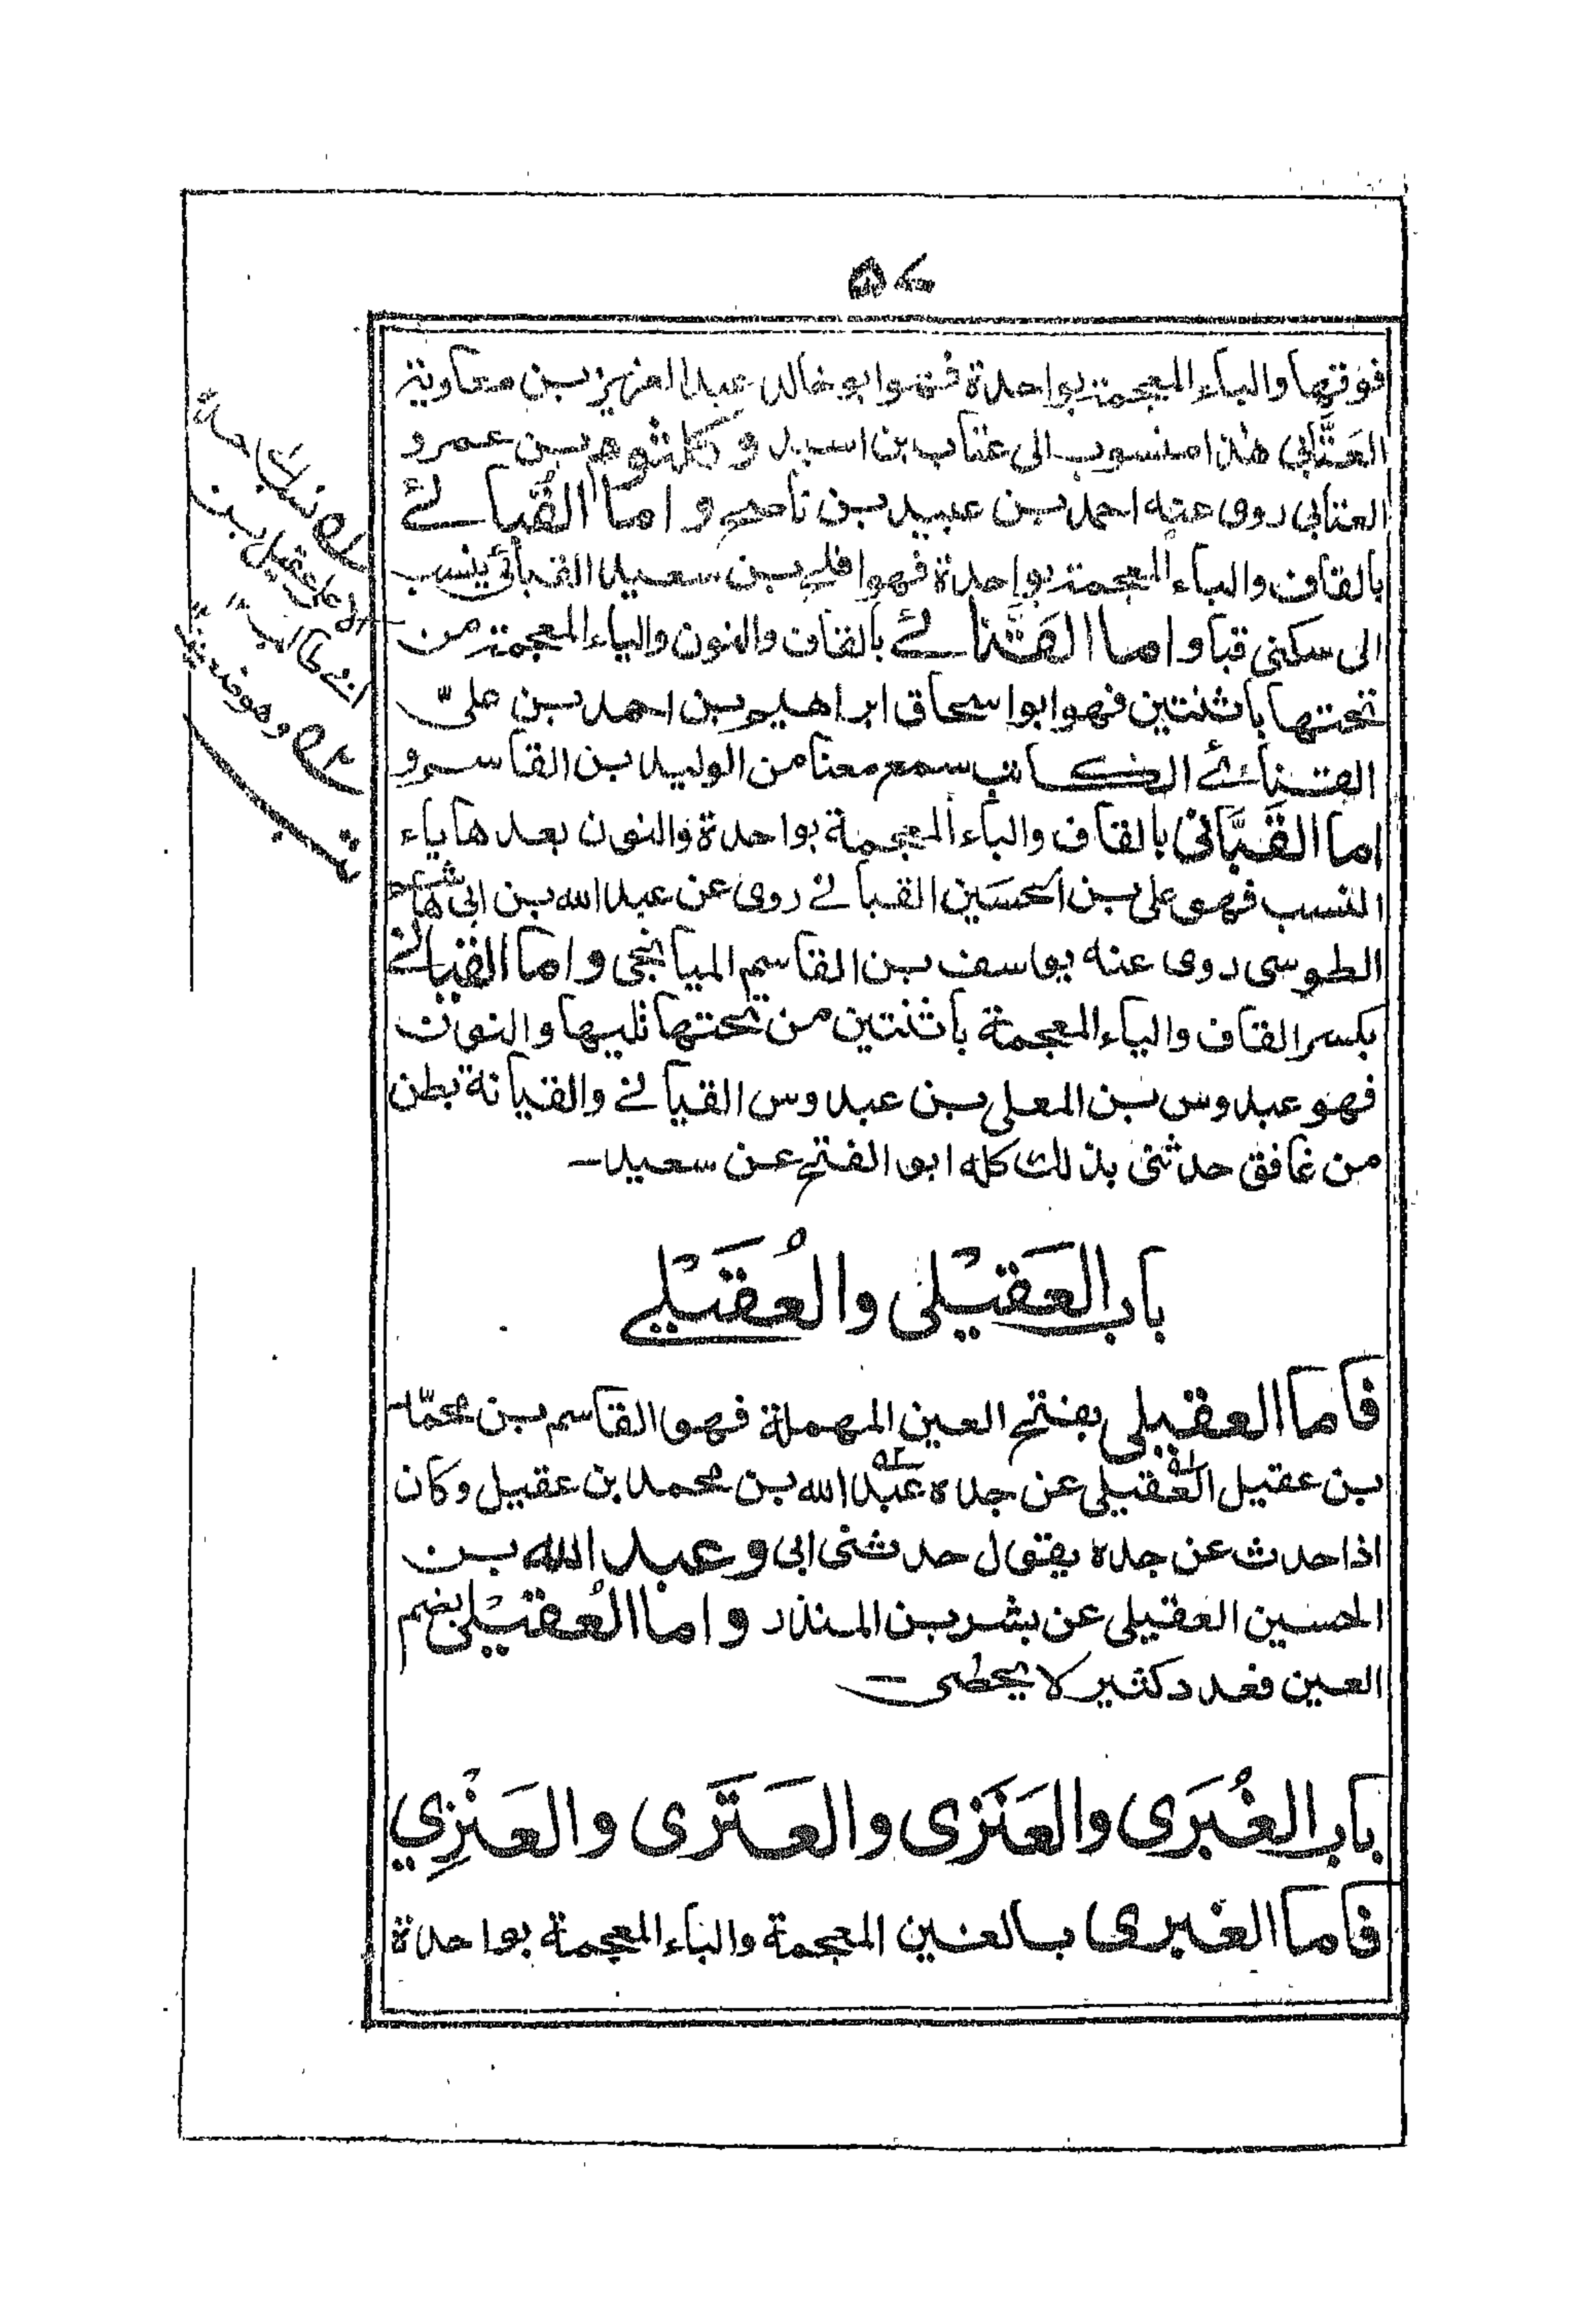 ٥٧
فوقها والباء المعجمة بواحدة فهو ابو خالد عبد العزيز بن معاوية
العَتَّابى هذا منسوب الى عتاب بن اسيد و كلثوم بن عمرو
العتابى روى عنه احمد بن عبيد بن ناصح و اما القُبائے
بالقاف والباء المعجمة بواحدة فهو افلح بن سعيد القبائى ينسب
الى سكنى قبا و اما القَنَّائے بالقاف والنون والياء المعجمة من
تحتها باثنتين فهو ابو اسحاق ابراهيم بن احمد بن علىّ
القنائے الكاتب سمع معنا من الوليد بن القاسم و
اما القَبَّانى بالقاف والباء المعجمة بواحدة والنون بعدها ياء
النسب فهو على بن الحسَين القبانے روى عن عبد الله بن ابى هاشم
الطوسى روى عنه يوسف بن القاسم الميانجى و اما القيانے
بكسر القاف والياء المعجمة باثنتين من تحتها تليها والنون
فهو عبدوس بن المعلى بن عبدوس القيانے والقيانة بطن
من غافق حدثنى بذلك كله ابو الفتح عن سعيد
باب العَقيْلى والعُقَيْلے
فاما العقيلى بفتح العين المهملة فهو القاسم بن محمّد
بن عقيل العقيلى عن جده عبد الله بن محمد بن عقيل وكان
اذا حدث عن جده يقول حدثنى ابى و عبد الله بن
الحسين العقيلى عن بشر بن المنذر و اما العُقَيْلى بضم
العين فعدد كثير لا يحصى
باب الغُبَرى والعَنَزى والعَتَرى والعَنْزِي
فاما الغبرى بالغين المعجمة والباء المعجمة بواحدة